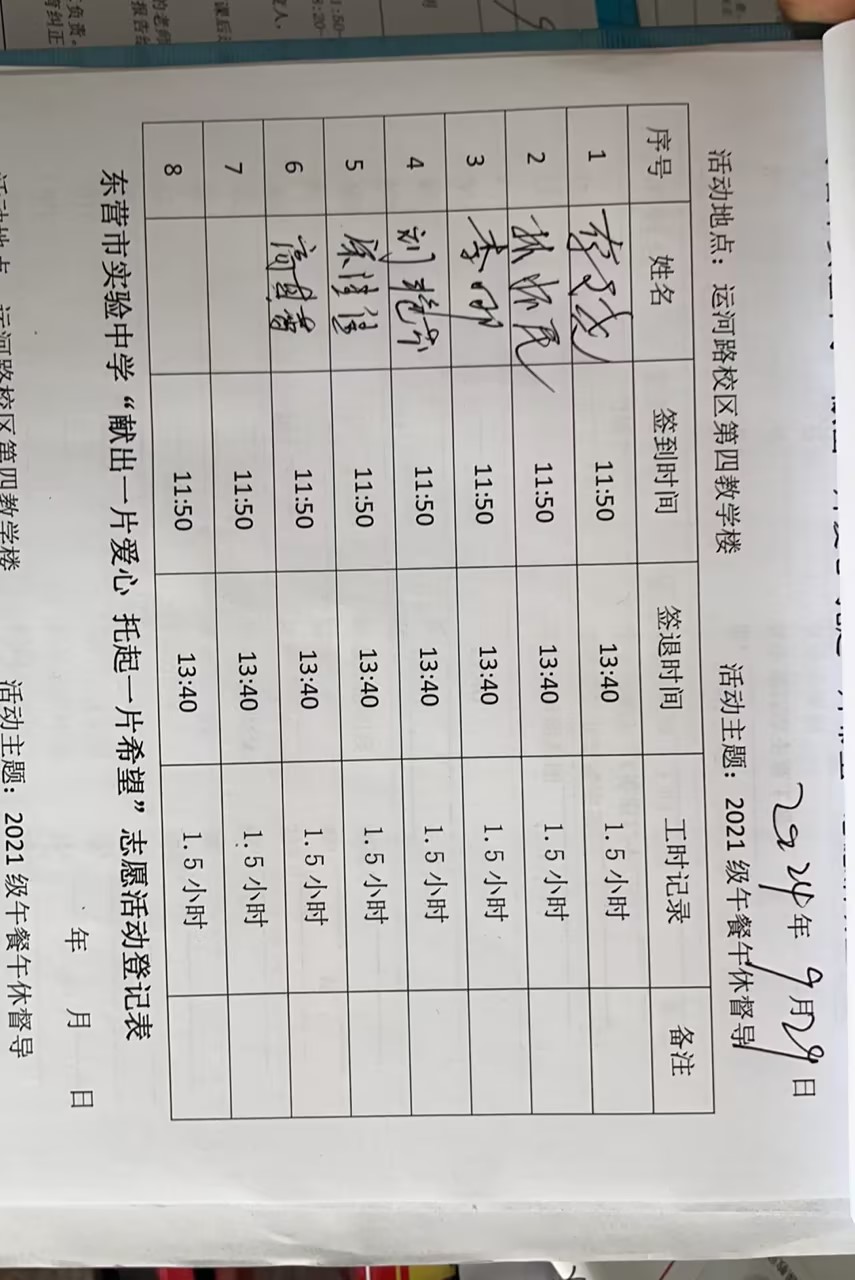 2024年9月29日
活动地点：运河路校区第四教学楼 活动主题：2021级午餐午休督导
序号 姓名 签到时间 签退时间 工时记录 备注
1 11:50 13:40 1.5小时
2 11:50 13:40 1.5小时
3 李丽 11:50 13:40 1.5小时
4 刘艳芬 11:50 13:40 1.5小时
5 11:50 13:40 1.5小时
6 11:50 13:40 1.5小时
7 11:50 13:40 1.5小时
8 11:50 13:40 1.5小时
东营市实验中学“献出一片爱心 托起一片希望”志愿活动登记表
年 月 日
活动地点：运河路校区第四教学楼 活动主题：2021级午餐午休督导